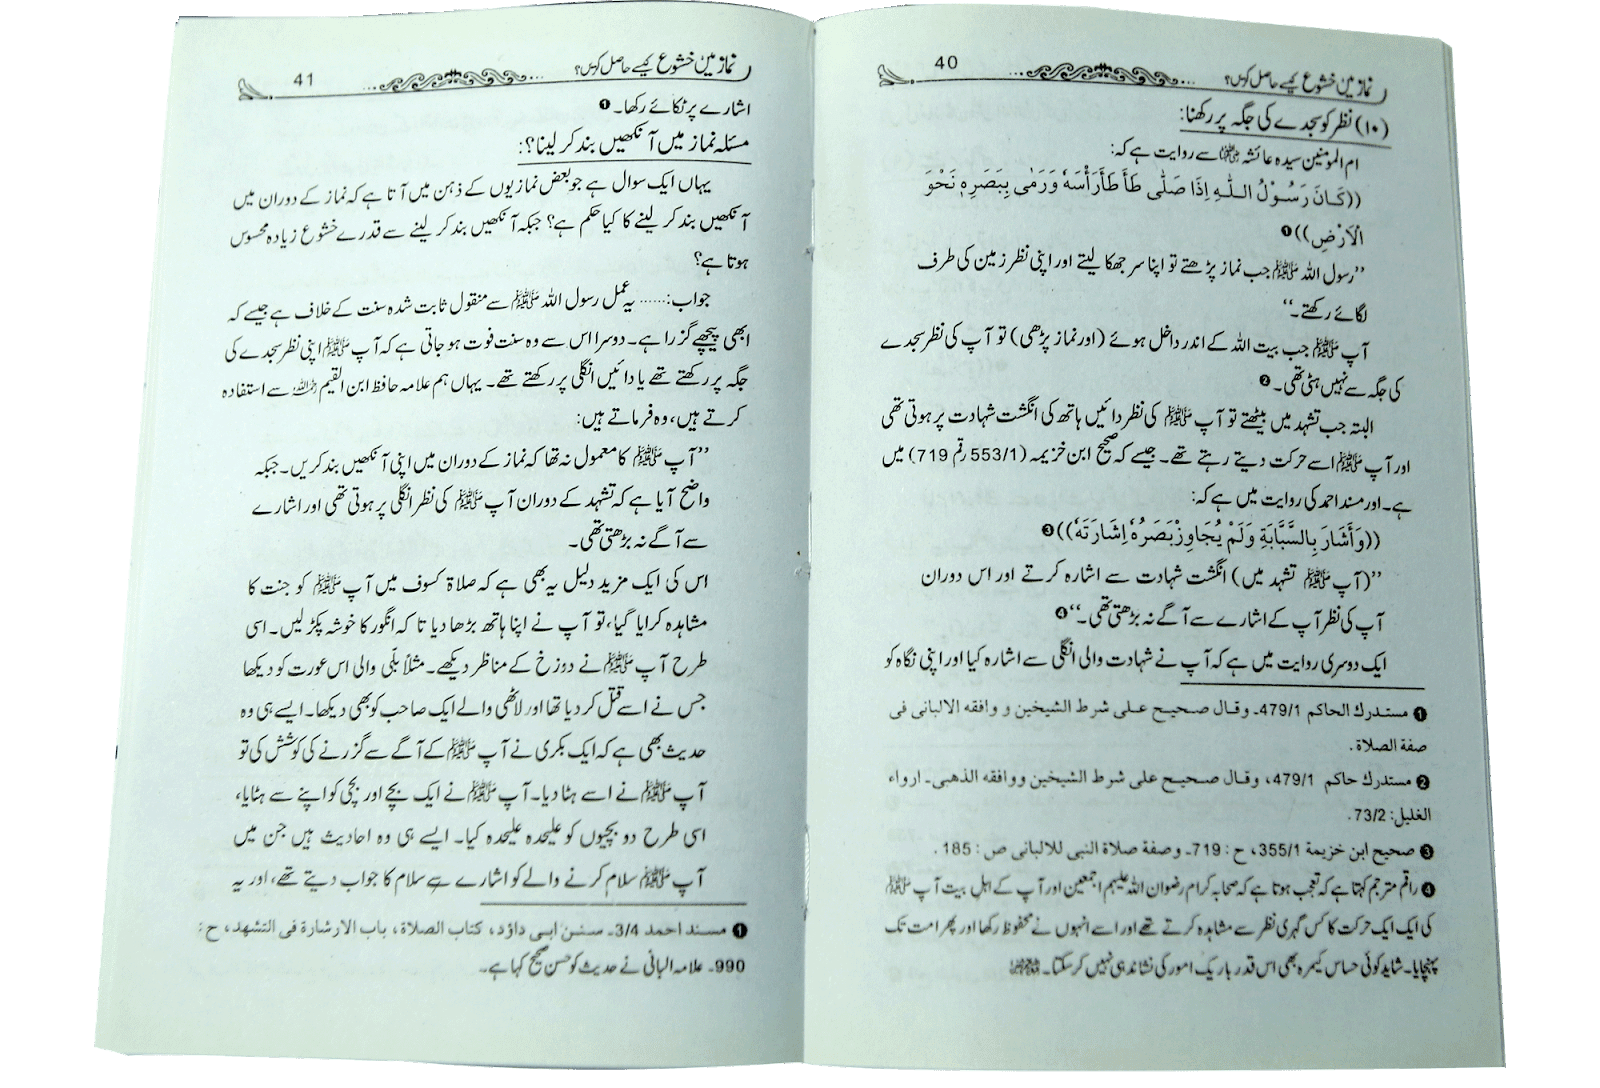 نماز میں خشوع کیسے حاصل کریں؟ 40
(۱۰) نظر کو سجدے کی جگہ پر رکھنا:
ام المومنین سیدہ عائشہ رضی اللہ عنہا سے روایت ہے کہ:
((كَانَ رَسُوْلُ اللهِ إِذَا صَلّٰى طَأْطَأَ رَأْسَهٗ وَرَمٰى بِبَصَرِهٖ نَحْوَ
الْاَرْضِ))❶
’’رسول اللہ ﷺ جب نماز پڑھتے تو اپنا سر جھکا لیتے اور اپنی نظر زمین کی طرف
لگائے رکھتے۔‘‘
آپ ﷺ جب بیت اللہ کے اندر داخل ہوئے (اور نماز پڑھی) تو آپ کی نظر سجدے
کی جگہ سے نہیں ہٹی تھی۔❷
البتہ جب تشہد میں بیٹھتے تو آپ ﷺ کی نظر دائیں ہاتھ کی انگشت شہادت پر ہوتی تھی
اور آپ ﷺ اسے حرکت دیتے رہتے تھے۔ جیسے کہ صحیح ابن خزیمہ (553/1 رقم 719) میں
ہے۔ اور مسند احمد کی روایت میں ہے کہ:
((وَأَشَارَ بِالسَّبَّابَةِ وَلَمْ يُجَاوِزْ بَصَرُهٗ إِشَارَتَهٗ))❸
’’(آپ ﷺ تشہد میں) انگشت شہادت سے اشارہ کرتے اور اس دوران
آپ کی نظر آپ کے اشارے سے آگے نہ بڑھتی تھی۔‘‘❹
ایک دوسری روایت میں ہے کہ آپ نے شہادت والی انگلی سے اشارہ کیا اور اپنی نگاہ کو
❶ مستدرك الحاكم 479/1۔ وقال صحيح على شرط الشيخين و وافقه الالبانى فى
صفة الصلاة.
❷ مستدرك حاكم 479/1، وقال صحيح على شرط الشيخين ووافقه الذهبى۔ ارواء
الغليل: 73/2.
❸ صحيح ابن خزيمة 355/1، ح: 719۔ وصفة صلاة النبى للالبانى ص: 185.
❹ راقم مترجم کہتا ہے کہ تعجب ہوتا ہے کہ صحابہ کرام رضوان اللہ علیہم اجمعین اور آپ کے اہل بیت آپ ﷺ
کی ایک ایک حرکت کا کس گہری نظر سے مشاہدہ کرتے تھے اور اسے انہوں نے محفوظ رکھا اور پھر امت تک
پہنچایا۔ شاید کوئی حساس کیمرہ بھی اس قدر باریک امور کی نشاندہی نہیں کر سکتا۔
نماز میں خشوع کیسے حاصل کریں؟ 41
اشارے پر ٹکائے رکھا۔❶
مسئلہ نماز میں آنکھیں بند کر لینا؟:
یہاں ایک سوال ہے جو بعض نمازیوں کے ذہن میں آتا ہے کہ نماز کے دوران میں
آنکھیں بند کر لینے کا کیا حکم ہے؟ جبکہ آنکھیں بند کر لینے سے قدرے خشوع زیادہ محسوس
ہوتا ہے؟
جواب: ...... یہ عمل رسول اللہ ﷺ سے منقول ثابت شدہ سنت کے خلاف ہے جیسے کہ
ابھی پیچھے گزرا ہے۔ دوسرا اس سے وہ سنت فوت ہو جاتی ہے کہ آپ ﷺ اپنی نظر سجدے کی
جگہ پر رکھتے تھے یا دائیں انگلی پر رکھتے تھے۔ یہاں ہم علامہ حافظ ابن القیم رحمہ اللہ سے استفادہ
کرتے ہیں، وہ فرماتے ہیں:
’’آپ ﷺ کا معمول نہ تھا کہ نماز کے دوران میں اپنی آنکھیں بند کریں۔ جبکہ
واضح آیا ہے کہ تشہد کے دوران آپ ﷺ کی نظر انگلی پر ہوتی تھی اور اشارے
سے آگے نہ بڑھتی تھی۔
اس کی ایک مزید دلیل یہ بھی ہے کہ صلاۃ کسوف میں آپ ﷺ کو جنت کا
مشاہدہ کرایا گیا، تو آپ نے اپنا ہاتھ بڑھا دیا تا کہ انگور کا خوشہ پکڑ لیں۔ اسی
طرح آپ ﷺ نے دوزخ کے مناظر دیکھے۔ مثلاً بلّی والی اس عورت کو دیکھا
جس نے اسے قتل کر دیا تھا اور لاٹھی والے ایک صاحب کو بھی دیکھا۔ ایسے ہی وہ
حدیث بھی ہے کہ ایک بکری نے آپ ﷺ کے آگے سے گزرنے کی کوشش کی تو
آپ ﷺ نے اسے ہٹا دیا۔ آپ ﷺ نے ایک بچے اور بچی کو اپنے سے ہٹایا،
اسی طرح دو بچیوں کو علیحدہ علیحدہ کیا۔ ایسے ہی وہ احادیث ہیں جن میں
آپ ﷺ سلام کرنے والے کو اشارے سے سلام کا جواب دیتے تھے، اور یہ
❶ مسند احمد 3/4۔ سنن ابى داؤد، كتاب الصلاة، باب الارشارة فى التشهد، ح:
990۔ علامہ البانی نے حدیث کو حسن صحیح کہا ہے۔